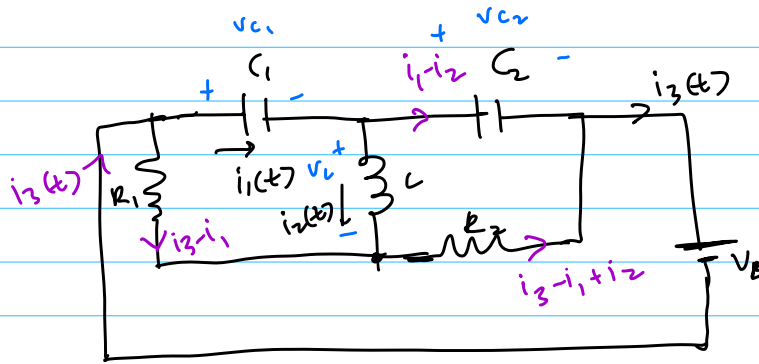 vc₁
vc₂
+
C₁
i₁-i₂
C₂
-
+
-
i₃(t)
i₃(t)
R₁
i₁(t)
v_L
+
L
i₂(t)
-
R₂
i₃-i₁
i₃-i₁+i₂